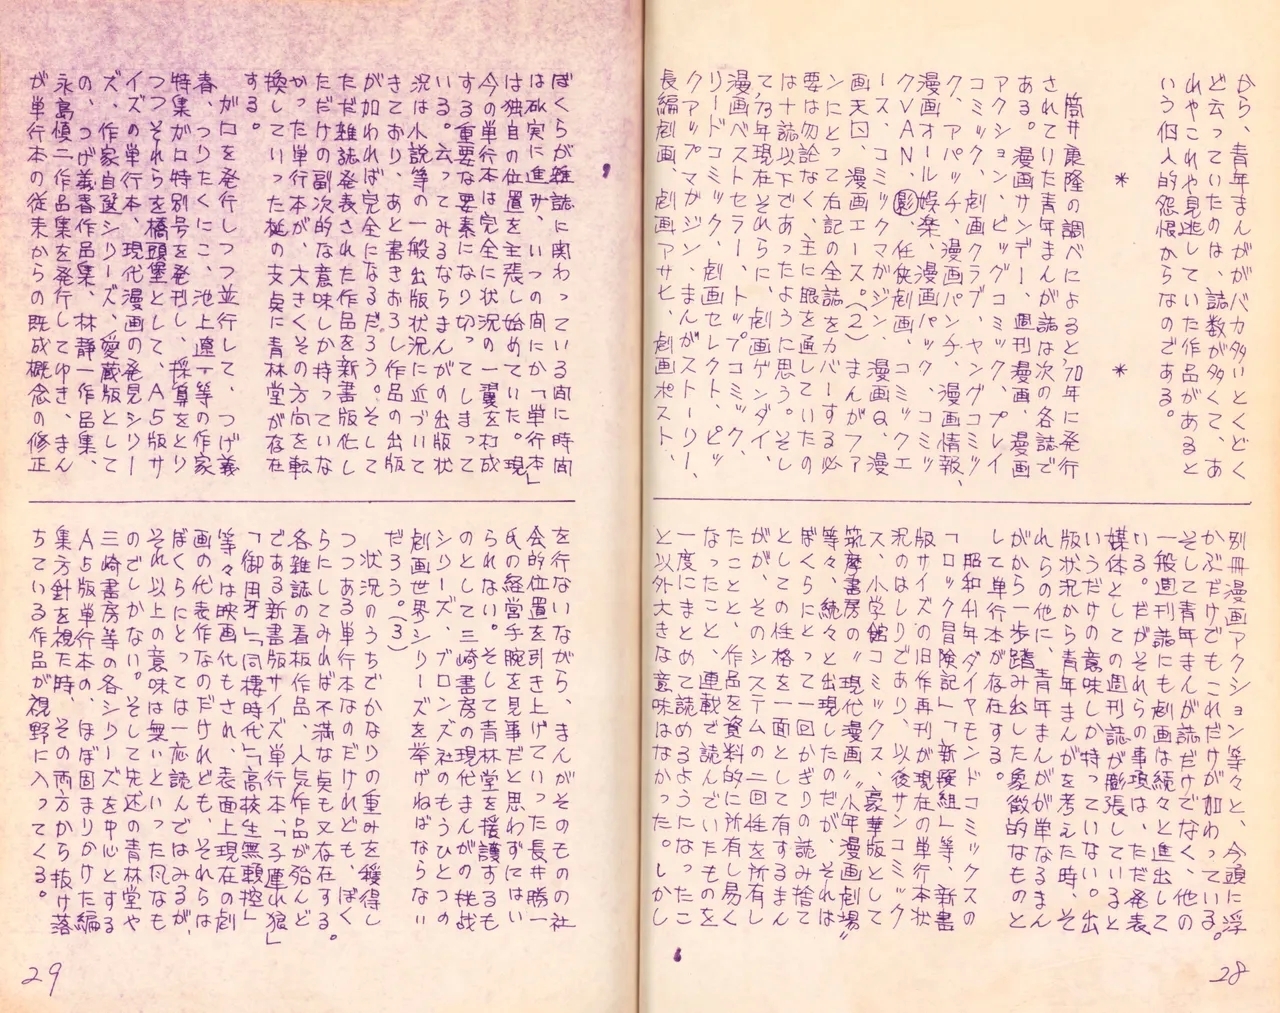 から、青年まんががバカ多いとくどく
ど云っていたのは、誌数が多くて、あ
れやこれや見逃していた作品があると
いう個人的怨恨からなのである。
＊　＊
筒井康隆の調べによると70年に発行
されていた青年まんが誌は次の各誌で
ある。漫画サンデー、週刊漫画、漫画
アクション、ビッグコミック、プレイ
コミック、劇画クラブ、ヤングコミッ
ク、アパッチ、漫画パンチ、漫画情報、
漫画オール娯楽、漫画パック、コミッ
クVAN、影、任侠劇画、コミックエ
ース、コミックマガジン、漫画Q、漫
画天国、漫画エース。(2)まんがファ
ンにとって右記の全誌をカバーする必
要は勿論なく、主に眼を通していたの
は十誌以下であったように思う。そし
て73年現在それらに、劇画ゲンダイ、
漫画ベストセラー、トップコミック、
リードコミック、劇画セレクト、ビッ
クアップマガジン、まんがストーリー、
長編劇画、劇画アサヒ、劇画ポスト、
別冊漫画アクション等々と、今頭に浮
かぶだけでもこれだけが加わっている。
そして青年まんが誌だけでなく、他の
一般週刊誌にも劇画は続々と進出して
いる。だがそれらの事項は、ただ発表
媒体としての週刊誌が膨張していると
いうだけの意味しか持っていない。出
版状況から青年まんがを考えた時、そ
れらの他に、青年まんがが単なるまん
がから一歩踏み出した象徴的なものと
して単行本が存在する。
昭和41年ダイヤモンドコミックスの
「ロック冒険記」「新選組」等、新書
版サイズの旧作再刊が現在の単行本状
況のはしりであり、以後サンコミック
ス、小学館コミックス、豪華版として
筑摩書房の〝現代漫画〟〝少年漫画劇場〟
等々、続々と出現したのだが、それは
ぼくらにとって一回かぎりの読み捨て
としての性格を一面として有するまん
がが、そのシステムの二回性を所有し
たことと、作品を資料的に所有し易く
なったこと、連載で読んでいたものを
一度にまとめて読めるようになったこ
と以外大きな意味はなかった。しかし
28
ぼくらが雑誌に関わっている間に時間
は砿実に進み、いつの間にか「単行本」
は独自の位置を主張し始めていた。現
今の単行本は完全に状況の一翼を打成
する重要な要素になり切ってしまって
いる。云ってみるならまんがの出版状
況は小説等の一般出版状況に近づいて
きており、あと書きおろし作品の出版
が加われば完全になるだろう。そして
ただ雑誌発表された作品を新書版化し
ただけの副次的な意味しか持っていな
かった単行本が、大きくその方向を転
換していった梃の支点に青林堂が存在
する。
ガロを発行しつつ並行して、つげ義
春、つりたくにこ、池上遼一等の作家
特集がロ特別号を発刊し、採算をとり
つつそれらを橋頭堡として、A5版サ
イズの単行本、現代漫画の発見シリー
ズ、作家自選シリーズ、愛蔵版として
の、つげ義春作品集、林静一作品集、
永島慎二作品集を発行してゆき、まん
が単行本の従来からの既成概念の修正
を行ないながら、まんがそのものの社
会的位置を引き上げていった長井勝一
氏の経営手腕を見事だと思わずにはい
られない。そして青林堂を援護するも
のとして三崎書房の現代まんがの挑戦
シリーズ、ブロンズ社のもうひとつの
劇画世界シリーズを挙げねばならない
だろう。(3)
状況のうちでかなりの重みを獲得し
つつある単行本なのだけれども、ぼく
らにしてみれば不満な点も又存在する。
各雑誌の看板作品、人気作品が殆んど
である新書版サイズ単行本、「子連れ狼」
「御用牙」「同棲時代」「高校生無頼控」
等々は映画化もされ、表面上現在の劇
画の代表作なのだけれども、それらは
ぼくらにとっては一応読んではみるが、
それ以上の意味は無いといった凡なも
のでしかない。そして先述の青林堂や
三崎書房等の各シリーズを中心とする
A5版単行本の、ほぼ固まりかけた編
集方針を視た時、その両方から抜け落
ちている作品が視野に入ってくる。
29